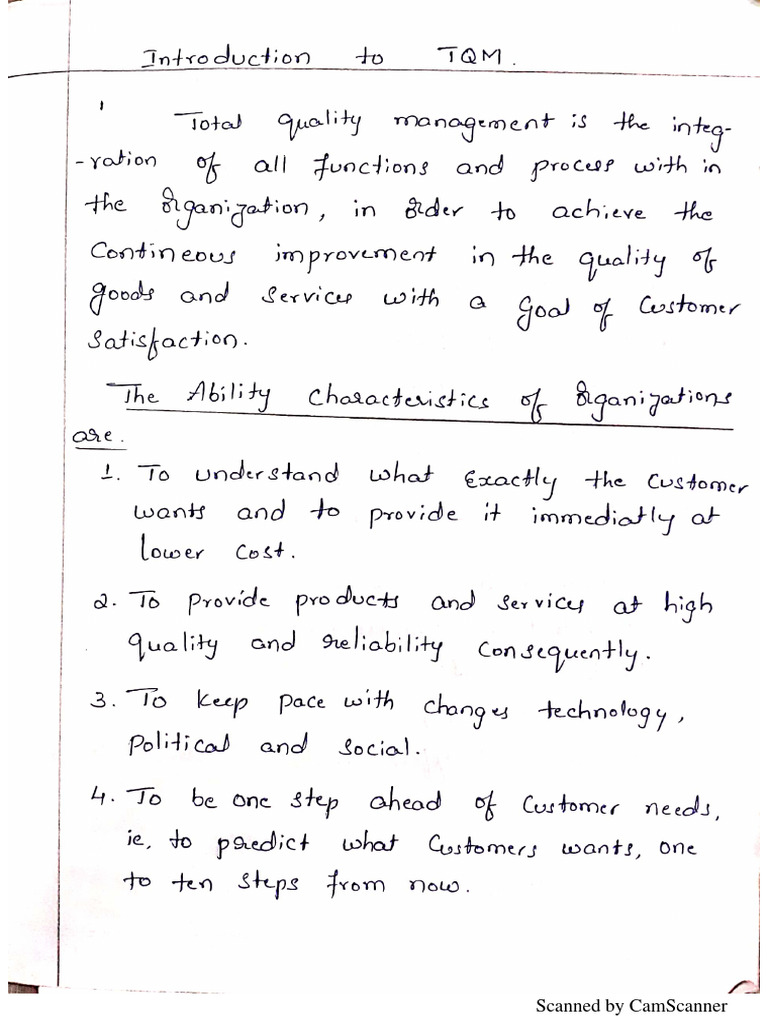 Introduction to TQM.
Total quality management is the integ-
-ration of all functions and process with in
the organization, in order to achieve the
Contineous improvement in the quality of
goods and services with a goal of Customer
Satisfaction.
The Ability characteristics of organizations
are.
1. To understand what exactly the customer
wants and to provide it immediatly at
lower cost.
2. To provide products and services at high
quality and reliability consequently.
3. To keep pace with changes technology,
political and social.
4. To be one step ahead of customer needs,
ie, to predict what customers wants, one
to ten steps from now.
Scanned by CamScanner